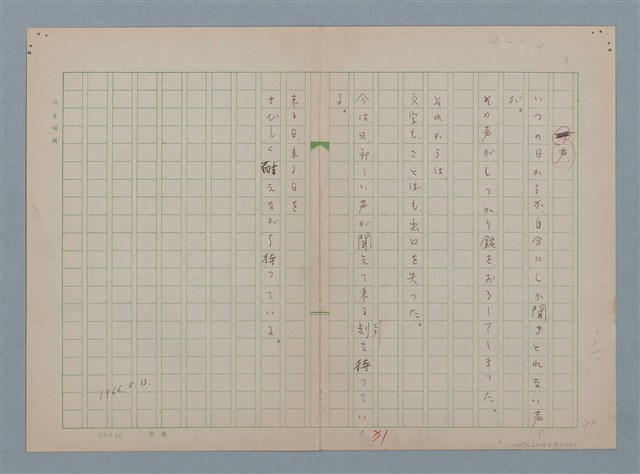 声
いつの日からか、自分にしか聞きとれない声
が。
その声がしっかり錠をおろしてしまった。
それからは、
文字も、ことばも、出口を失った。
今は只、新しい声が聞えて来る刻を待ってい
る。
来る日、来る日を
さびしく耐えながら待っている。
1966.5.13.
20×20
31